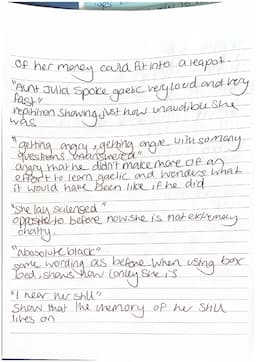 of her money could fit into a teapot.
"Aunt Julia spoke gaelic very loud and very
fast"
repitition showing just how inaudible she
was
"getting angry, getting angry with so many
questions unanswered"
angry that he didn't make more of an
effort to learn gaelic and wonders what
it would have been like if he did
"She lay silensed"
opposite to before now she is not extremely
chatty.
"Absolute black"
same wording as before when using box
bed, shows how lonley she is
"I hear her still"
Show that the memory of her still
lives on